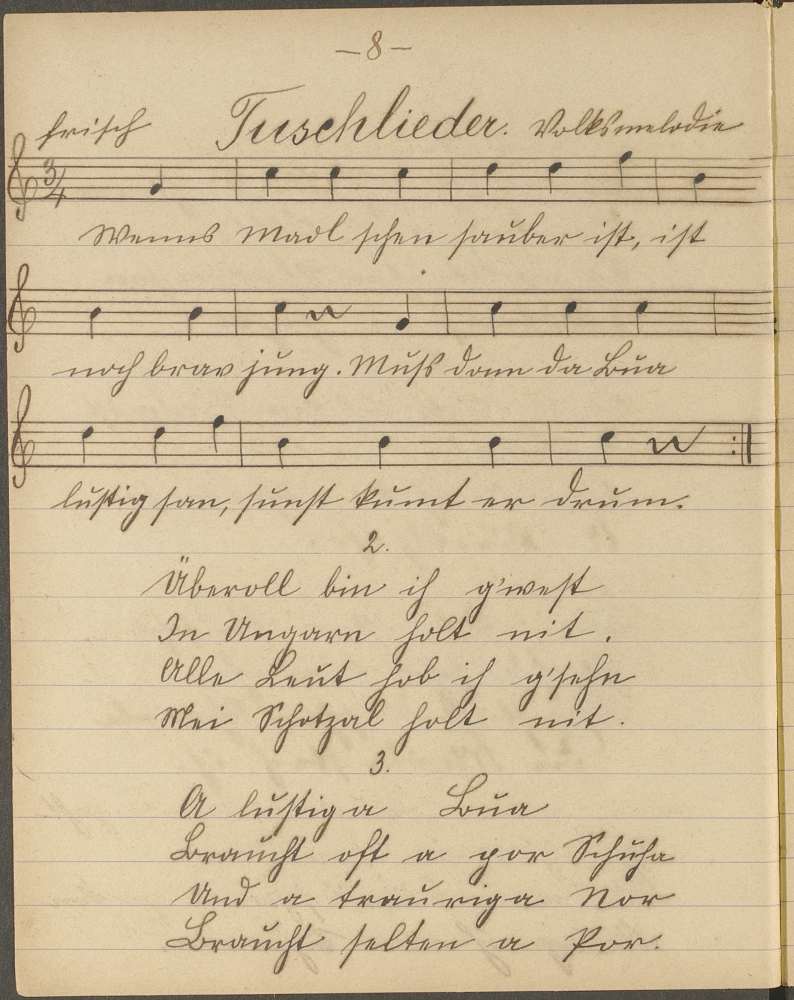 — 8 —
frisch Tuschlieder. Volksmelodie
3/4
Wenns Madl schen sauber ist, ist
noch brav jung. Muß dann da Bua
lustig san, sunst kumt er drum.
2.
Überoll bin ich g'west
In Ungarn holt nit.
Alle Leut hob ich g'sehn
Mei Schotzal holt nit.
3.
A lustiga Bua
Braucht oft a por Schuha
Und a trauriga Nor
Braucht selten a Por.